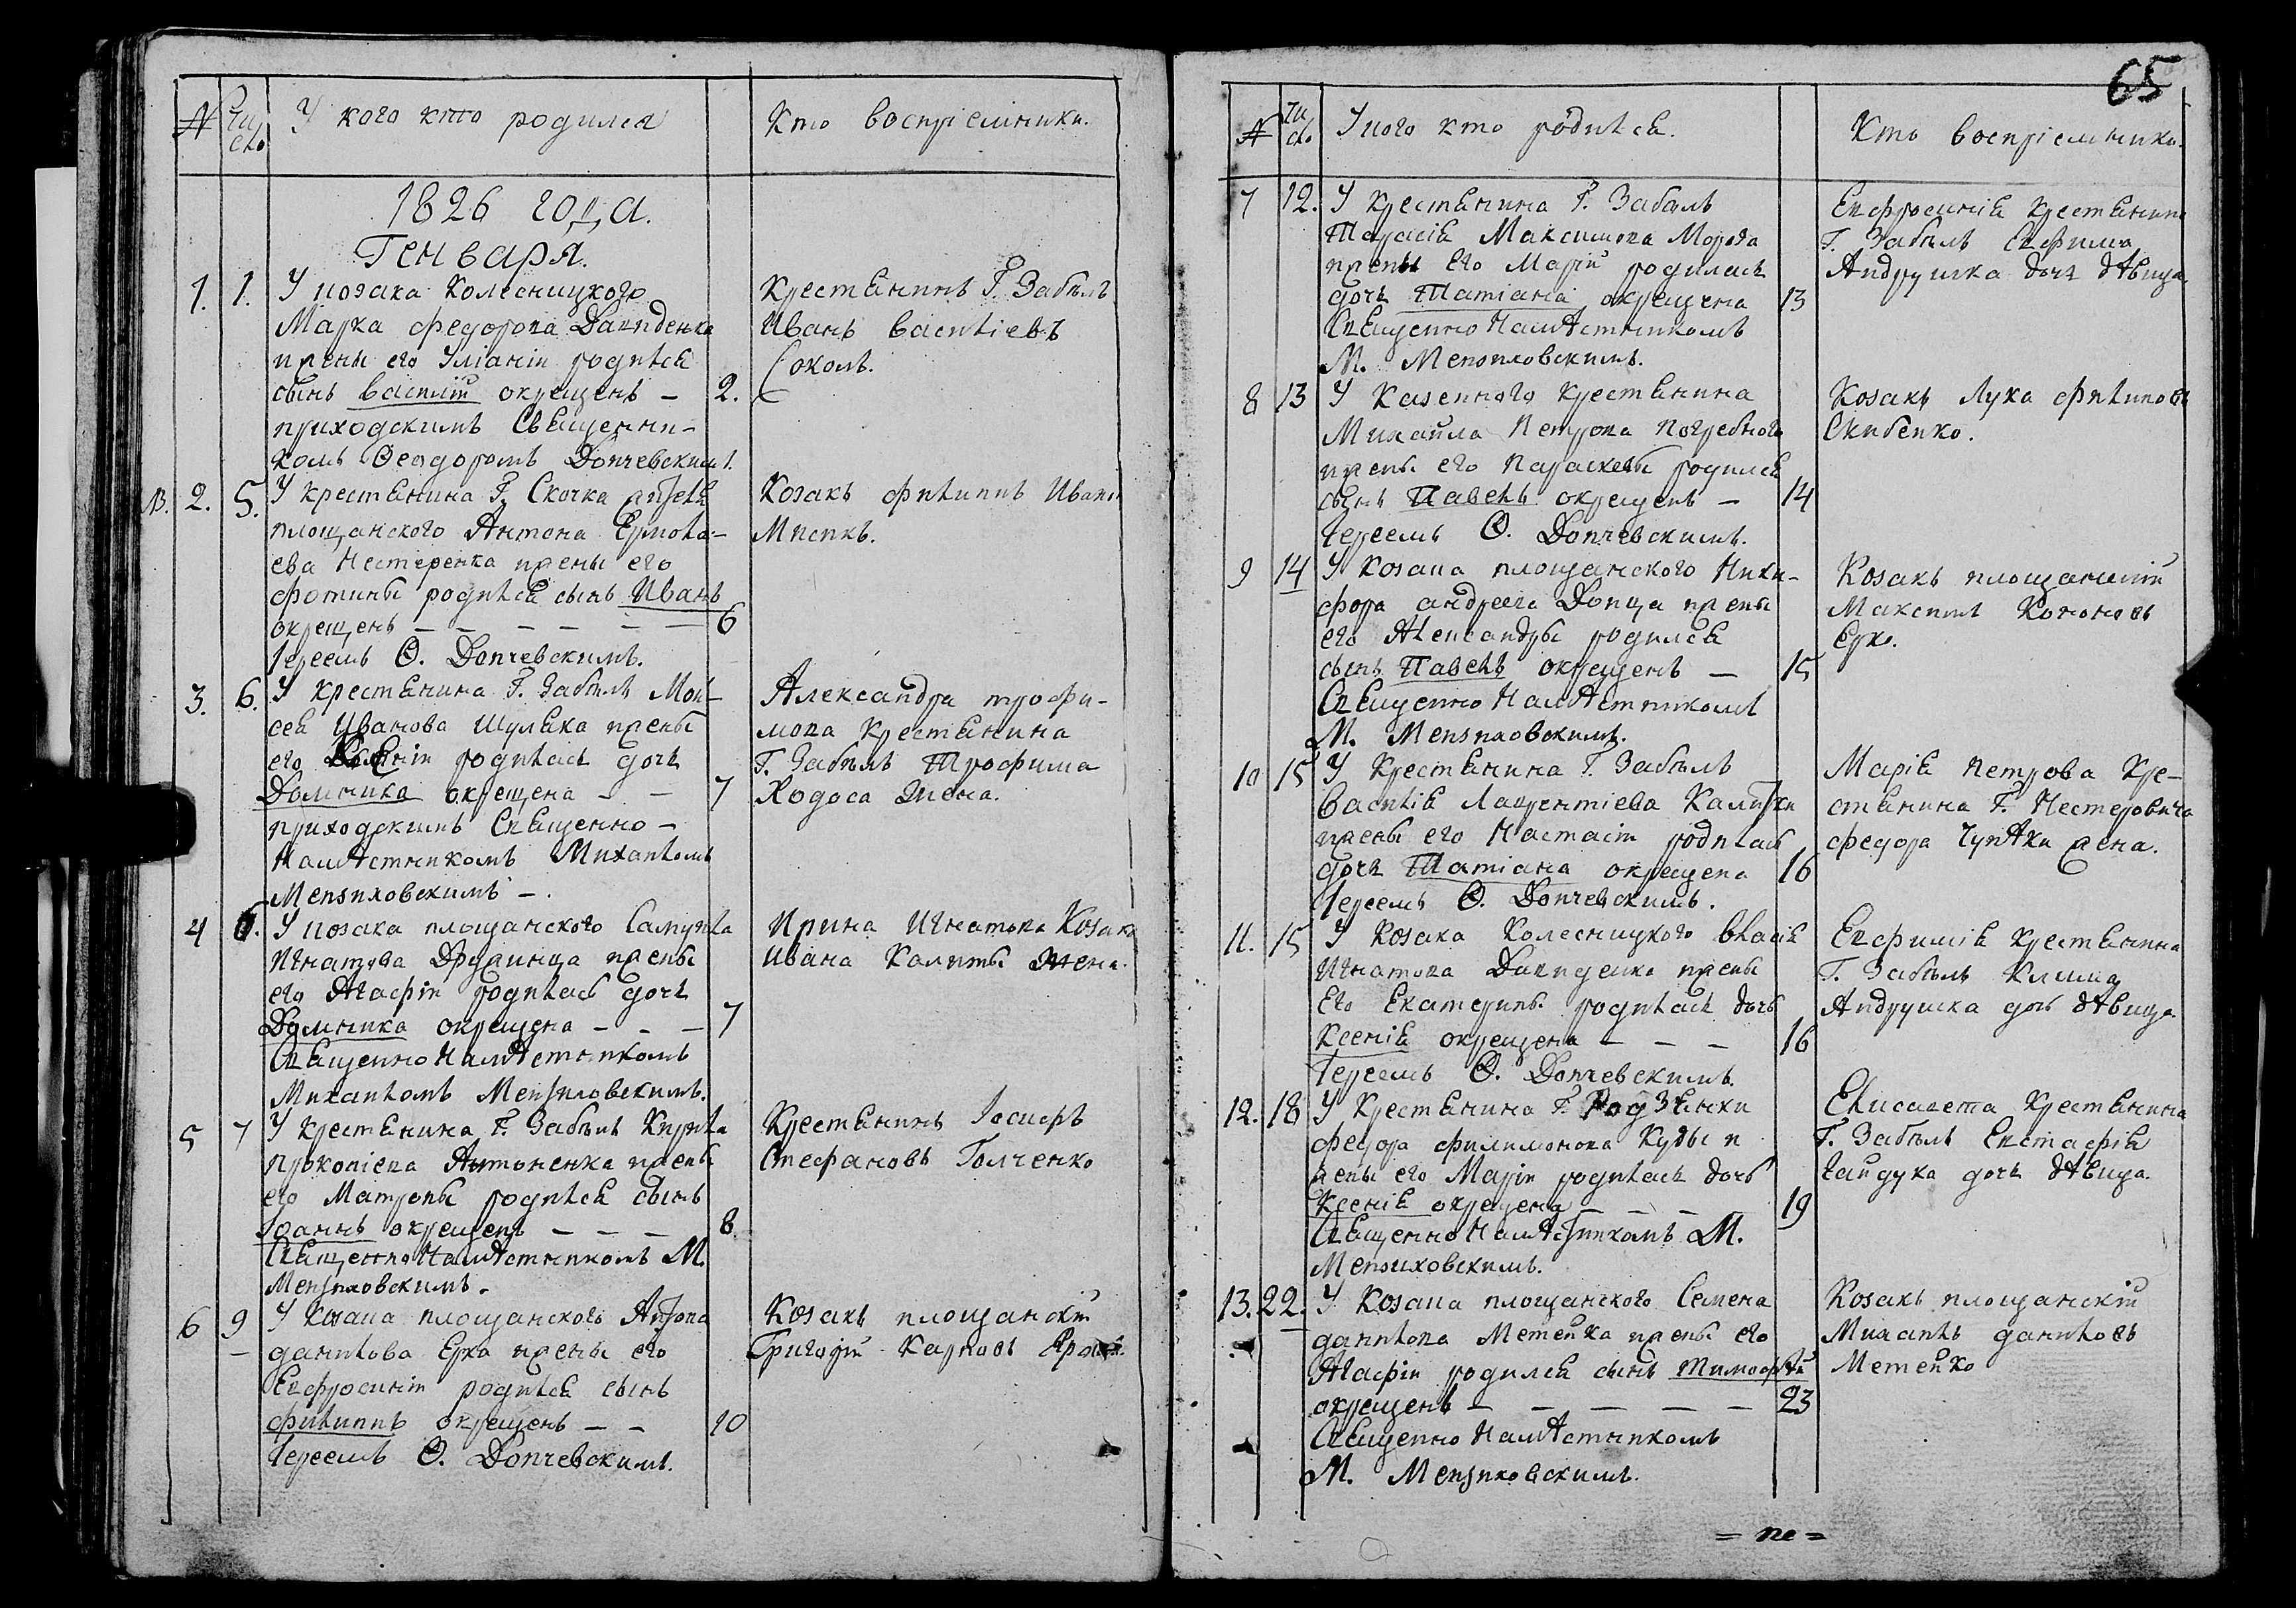 65
№ Чи сло У кого кто родился Кто воспріемники.
1826 года.
Генваря.
1. 1. У козака Колесницкого
Марка Федорова Давиденка
и жены его Уліаніи родился
сынъ Василій окрещенъ – 2.
приходскимъ Священни-
комъ Ѳеодоромъ Дончевскимъ.
Крестянинъ Г. Забѣлъ
Иванъ Василіевъ
Соколъ.
2. 5. У крестянина Г. Скочка
площанского Антона Ермола-
ева Нестеренка и жены его
Фотины родился сынъ Иванъ
окрещенъ – – – – – 6
Іереемъ Ѳ. Дончевскимъ.
Козакъ Филиппъ Иванов
Мисикъ.
3. 6. У крестянина Г. Забѣлъ Мои-
сея Иванова Шуляка и жены
его родилась дочь
Домника окрещена – – 7
приходскимъ Священно-
намѣстникомъ Михаиломъ
Мензиловскимъ –.
Александра Трофи-
мова крестянина
Г. Забѣлъ Трофима
Ходоса жена.
4 6. У козака площанского Самуила
Игнатова Дружинца и жены
его Агафіи родилась дочь
Домника окрещена – – – 7
Священно Намѣстникомъ
Михаиломъ Мензиловскимъ.
Ирина Игнатова Козака
Ивана Калиты жена.
5 7 У крестянина Г. Забѣлъ Кирила
Прокопіева Антоненка и жены
его Матроны родился сынъ
Іоаннъ окрещенъ – – – 8
Священно Намѣстникомъ М.
Мензиловскимъ.
Крестянинъ Іосифъ
Стефановъ Голченко
6 9 У козака площанского Антона
Данилова Ерка и жены его
Евфросиніи родился сынъ
Филиппъ окрещенъ – – 10
Іереемъ Ѳ. Дончевскимъ.
Козакъ площанскій
Григорій Карповъ
№ Чи сло У кого кто родился. Кто воспріемники.
7 12. У крестянина Г. Забѣлъ
Тарасія Максимова Мороза
и жены его Маріи родилась
дочь Татіана окрещена 13
Священно Намѣстникомъ
М. Мензиловскимъ.
Евфросинія крестянина
Г. Забѣлъ Евфима
Андрушка дочь дѣвица.
8 13 У казенного крестянина
Михайла Петрова Погребного
и жены его Параскевы родился
сынъ Павелъ окрещенъ – 14
Іереемъ Ѳ. Дончевскимъ.
Козакъ Лука Филиповъ
Скибенко.
9 14 У козака площанского Ники-
фора Андреева Донца и жены
его Александры родился
сынъ Павелъ окрещенъ – 15
Священно Намѣстникомъ
М. Мензиловскимъ.
Козакъ площанскій
Максимъ Кононовъ
Ерко.
10 15 У крестянина Г. Забѣлъ
Василія Лаврентіева Калитки
и жены его Настасіи родилась
дочь Татіана окрещена 16
Іереемъ Ѳ. Дончевскимъ.
Марія Петрова кре-
стянина Г. Нестеровича
Федора жена.
11. 15 У козака Колесницкого Власія
Игнатова Давиденка и жены
его Екатерины родилась дочь
Ксенія окрещена – – – 16
Іереемъ Ѳ. Дончевскимъ.
Евфимія крестянина
Г. Забѣлъ Клима
Андрушка дочь дѣвица
12. 18 У крестянина Г. Родзянки
Федора Филимонова Куды и
жены его Маріи родилась дочь
Ксенія окрещена – – – 19
Священно Намѣстникомъ М.
Мензиловскимъ.
Елисавета крестянина
Г. Забѣлъ Евстафія
Гайдука дочь дѣвица.
13. 22. У козака площанского Семена
Данилова Метейка и жены его
Агафіи родился сынъ Тимофѣй
окрещенъ – – – – – 23
Священно Намѣстникомъ
М. Мензиловскимъ.
Козакъ площанскій
Михаилъ Даниловъ
Метейко